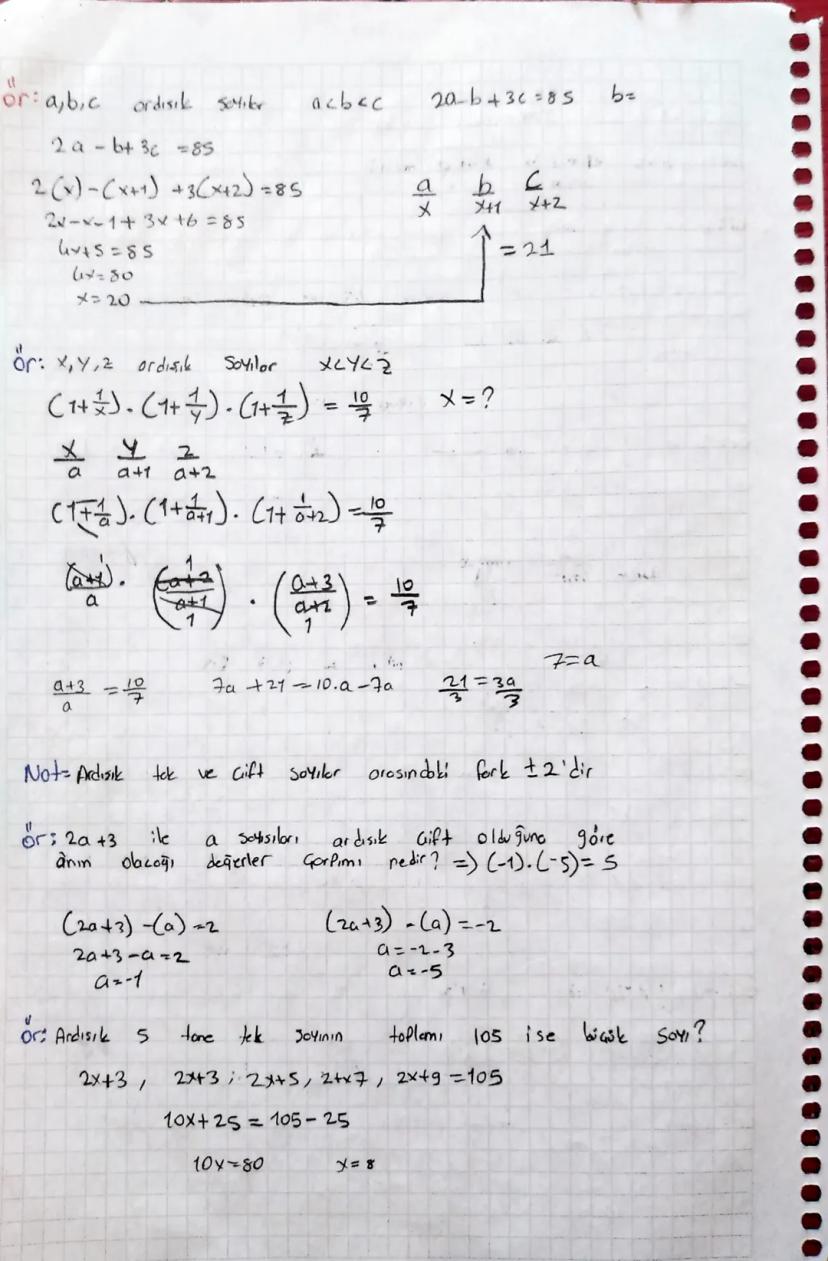 Ör: a,b,c ardışık sayılar a<b<c 2a-b+3c=85 b=
2a-b+3c=85
2(x)-(x+1)+3(x+2)=85 a/x b/x+1 c/x+2
2x-x-1+3x+6=85
4x+5=85 =21
4x=80
x=20
Ör: x,y,z ardışık sayılar x<y<z
(1+1/x).(1+1/y).(1+1/z)=10/7 x=?
x/a y/a+1 z/a+2
(1+1/a).(1+1/a+1).(1+1/a+2)=10/7
(a+1)/a . (a+2/a+1) . (a+3/a+2) = 10/7
7=a
a+3/a = 10/7 7a+21=10.a-7a 21/3=3a/3
Not= Ardışık tek ve çift sayılar arasındaki fark ±2'dir
Ör: 2a+3 ile a sayıları ardışık çift olduğuna göre
a'nın alacağı değerler çarpımı nedir? => (-1).(-5)=5
(2a+3)-(a)=2 (2a+3)-(a)=-2
2a+3-a=2 a=-2-3
a=-1 a=-5
Ör: Ardışık 5 tane tek sayının toplamı 105 ise küçük sayı?
2x+3, 2x+3, 2x+5, 2+x7, 2x+9=105
10x+25=105-25
10x=80 x=8